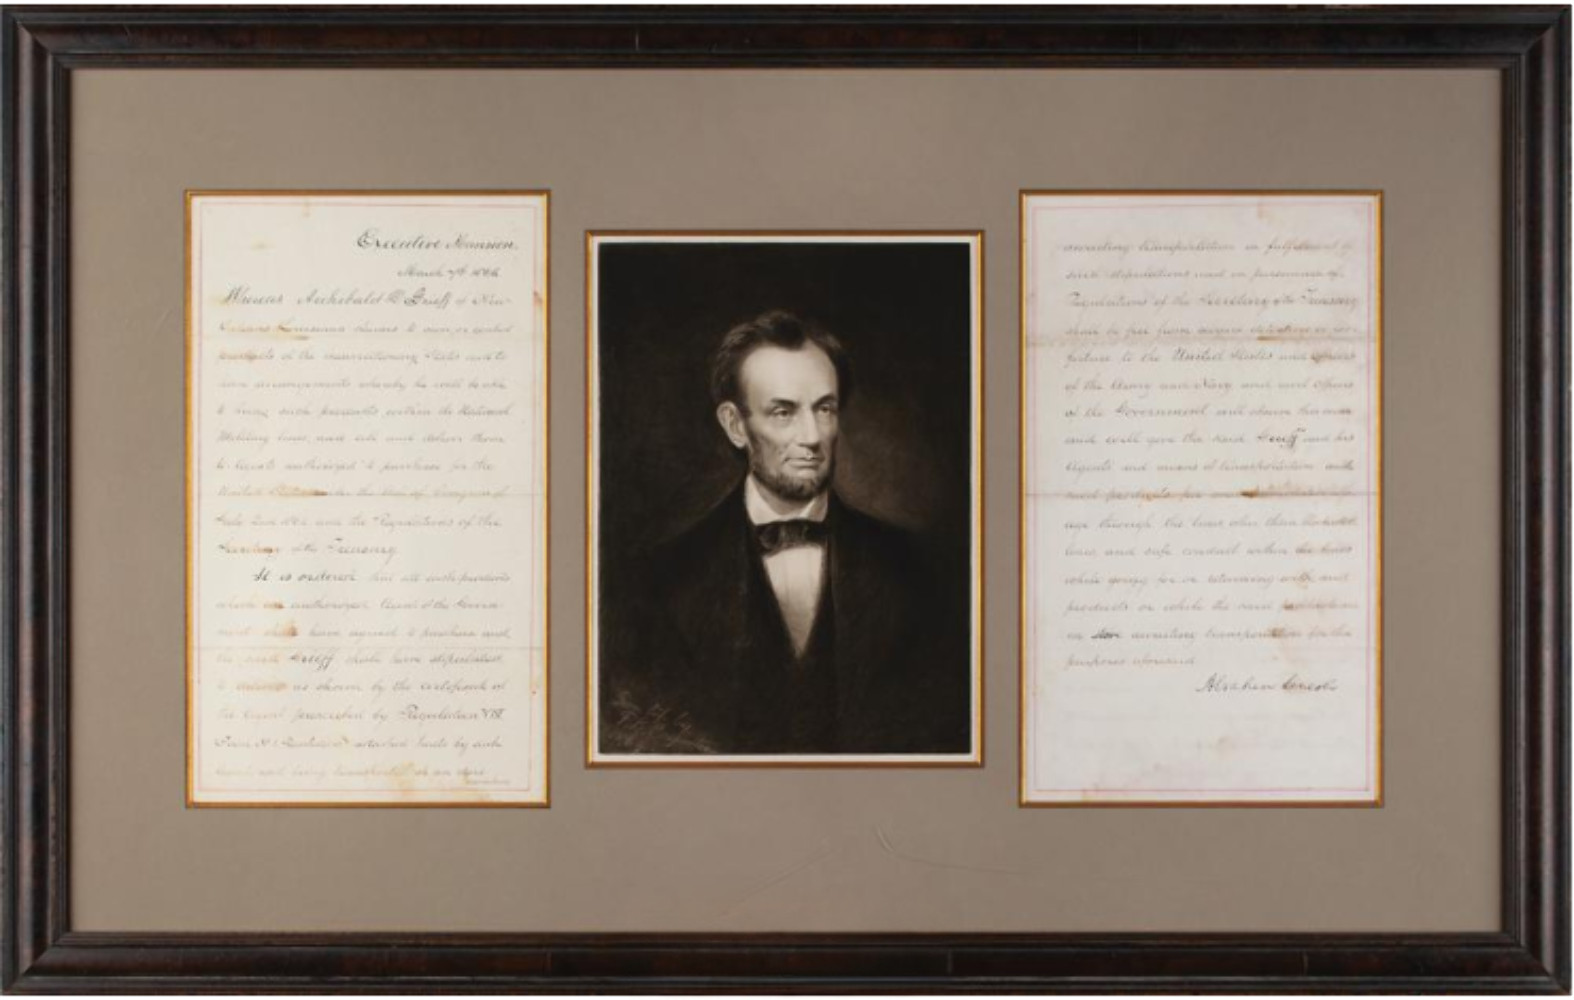 Executive Mansion.
March 7th 186
Whereas Archibald Grieff of New
Orleans Louisiana claims to own or control
products of the insurrectionary States and to
have arrangements whereby he will be able
to bring such products within the National
Military lines, and sell and deliver them
to Agents authorized to purchase for the
United States under the Act of Congress of
July 2nd 1864 and the Regulations of the
Secretary of the Treasury.
It is ordered that all such products
which an authorized Agent of the Govern
ment shall have agreed to purchase and
the said Grieff shall have stipulated
to deliver as shown by the certificate of
the Agent prescribed by Regulation VIII
Form No 1 attached hereto by such
Agent and being transported or in store
awaiting transportation in fulfilment of
such stipulations and in pursuance of
Regulations of the Secretary of the Treasury
shall be free from seizure detention or for-
feiture to the United States and officers
of the Army and Navy and civil officers
of the Government will observe this order
and will give the said Grieff and his
Agents and means of transportation and
said products free and
age through the lines other than blockaded
lines and safe conduct within the lines
while going for or returning with said
products or while the said products are
in store awaiting transportation for the
purposes aforesaid
Abraham Lincoln